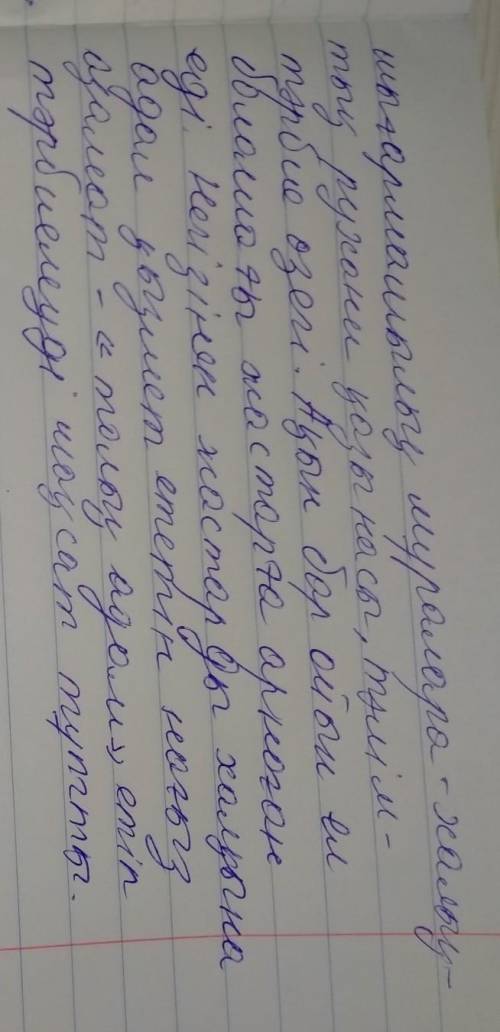 шығармашылық мұралара - халық-
тың рухани қазынасы, тәлім-
тәрбие өзегі. Ақын бар ойын ел
болашағы жастарға арнаған
еді. Негізінен жастарды халқына
адал қызмет ететін нағыз
азамат - "толық адам", етіп
тәрбиелеуді мақсат тұтты.